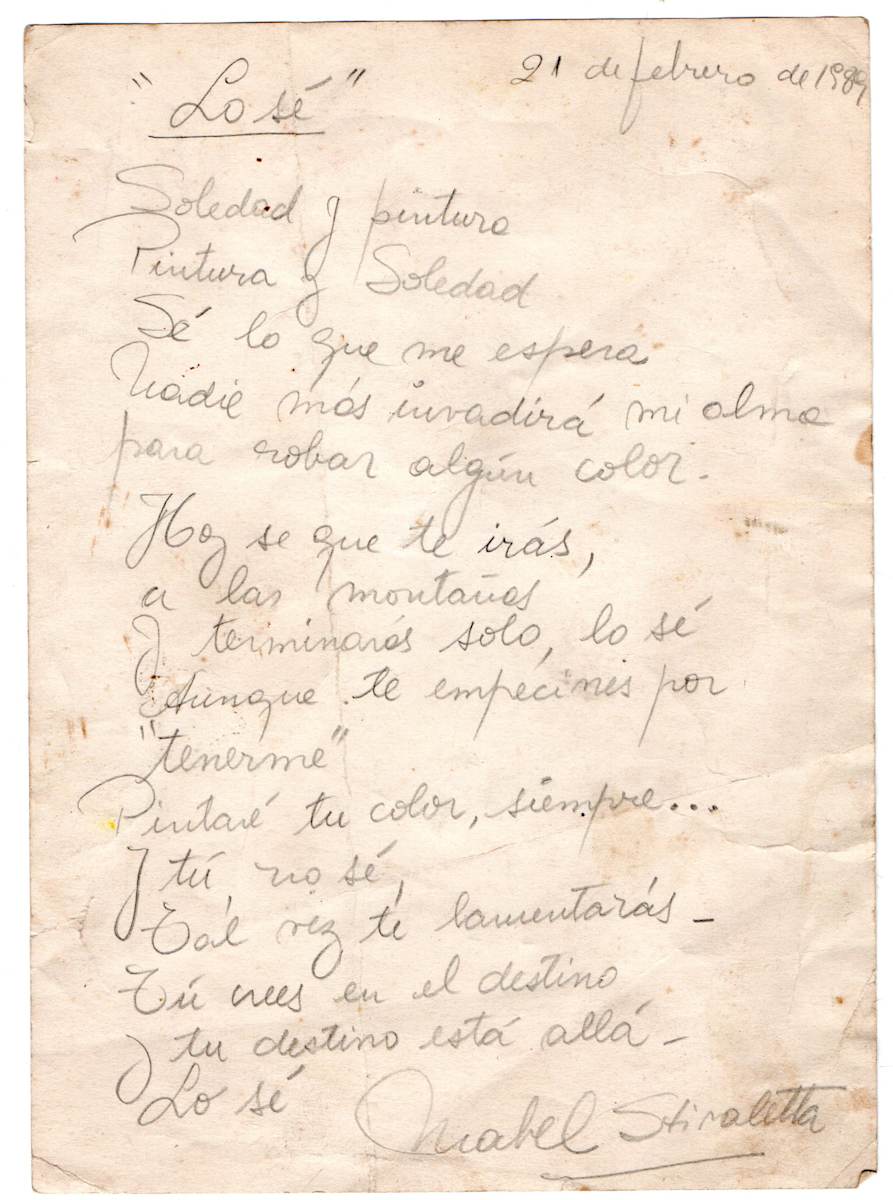 21 de febrero de 1989
"Lo sé"
Soledad y pintura
Pintura y Soledad
Sé lo que me espera
Nadie más invadirá mi alma
para robar algún color.
Hoy se que te irás,
a las montañas
y terminarás solo, lo sé
Aunque te empecines por
"tenerme"
Pintaré tu color, siempre...
Y tú, no sé,
Tál vez te lamentarás -
Tú crees en el destino
y tu destino está allá -
Lo sé
Mabel